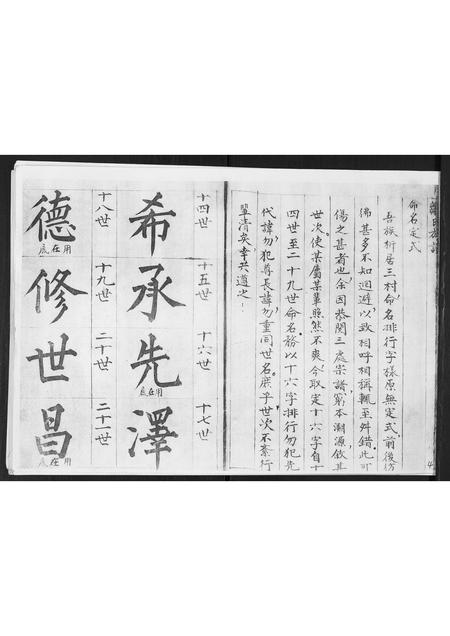 命名定式
吾族析居三村命名排行字樣原無定式前後彷
彿甚多不知迴避以致相呼相稱輒至舛錯此可
傷之甚者也余因恭閱三處宗譜窮本溯源叙其
世次使某屬某輩照然不爽今取定十六字自十
四世至二十九世命名務以十六字排行勿犯先
代諱勿犯尊長諱勿重同世名庶乎世次不紊行
輩清矣幸共遵之
十四世 十五世 十六世 十七世
希 承 先 澤
底在用
十八世 十九世 二十世 二十一世
德 修 世 昌
底在用 底在用